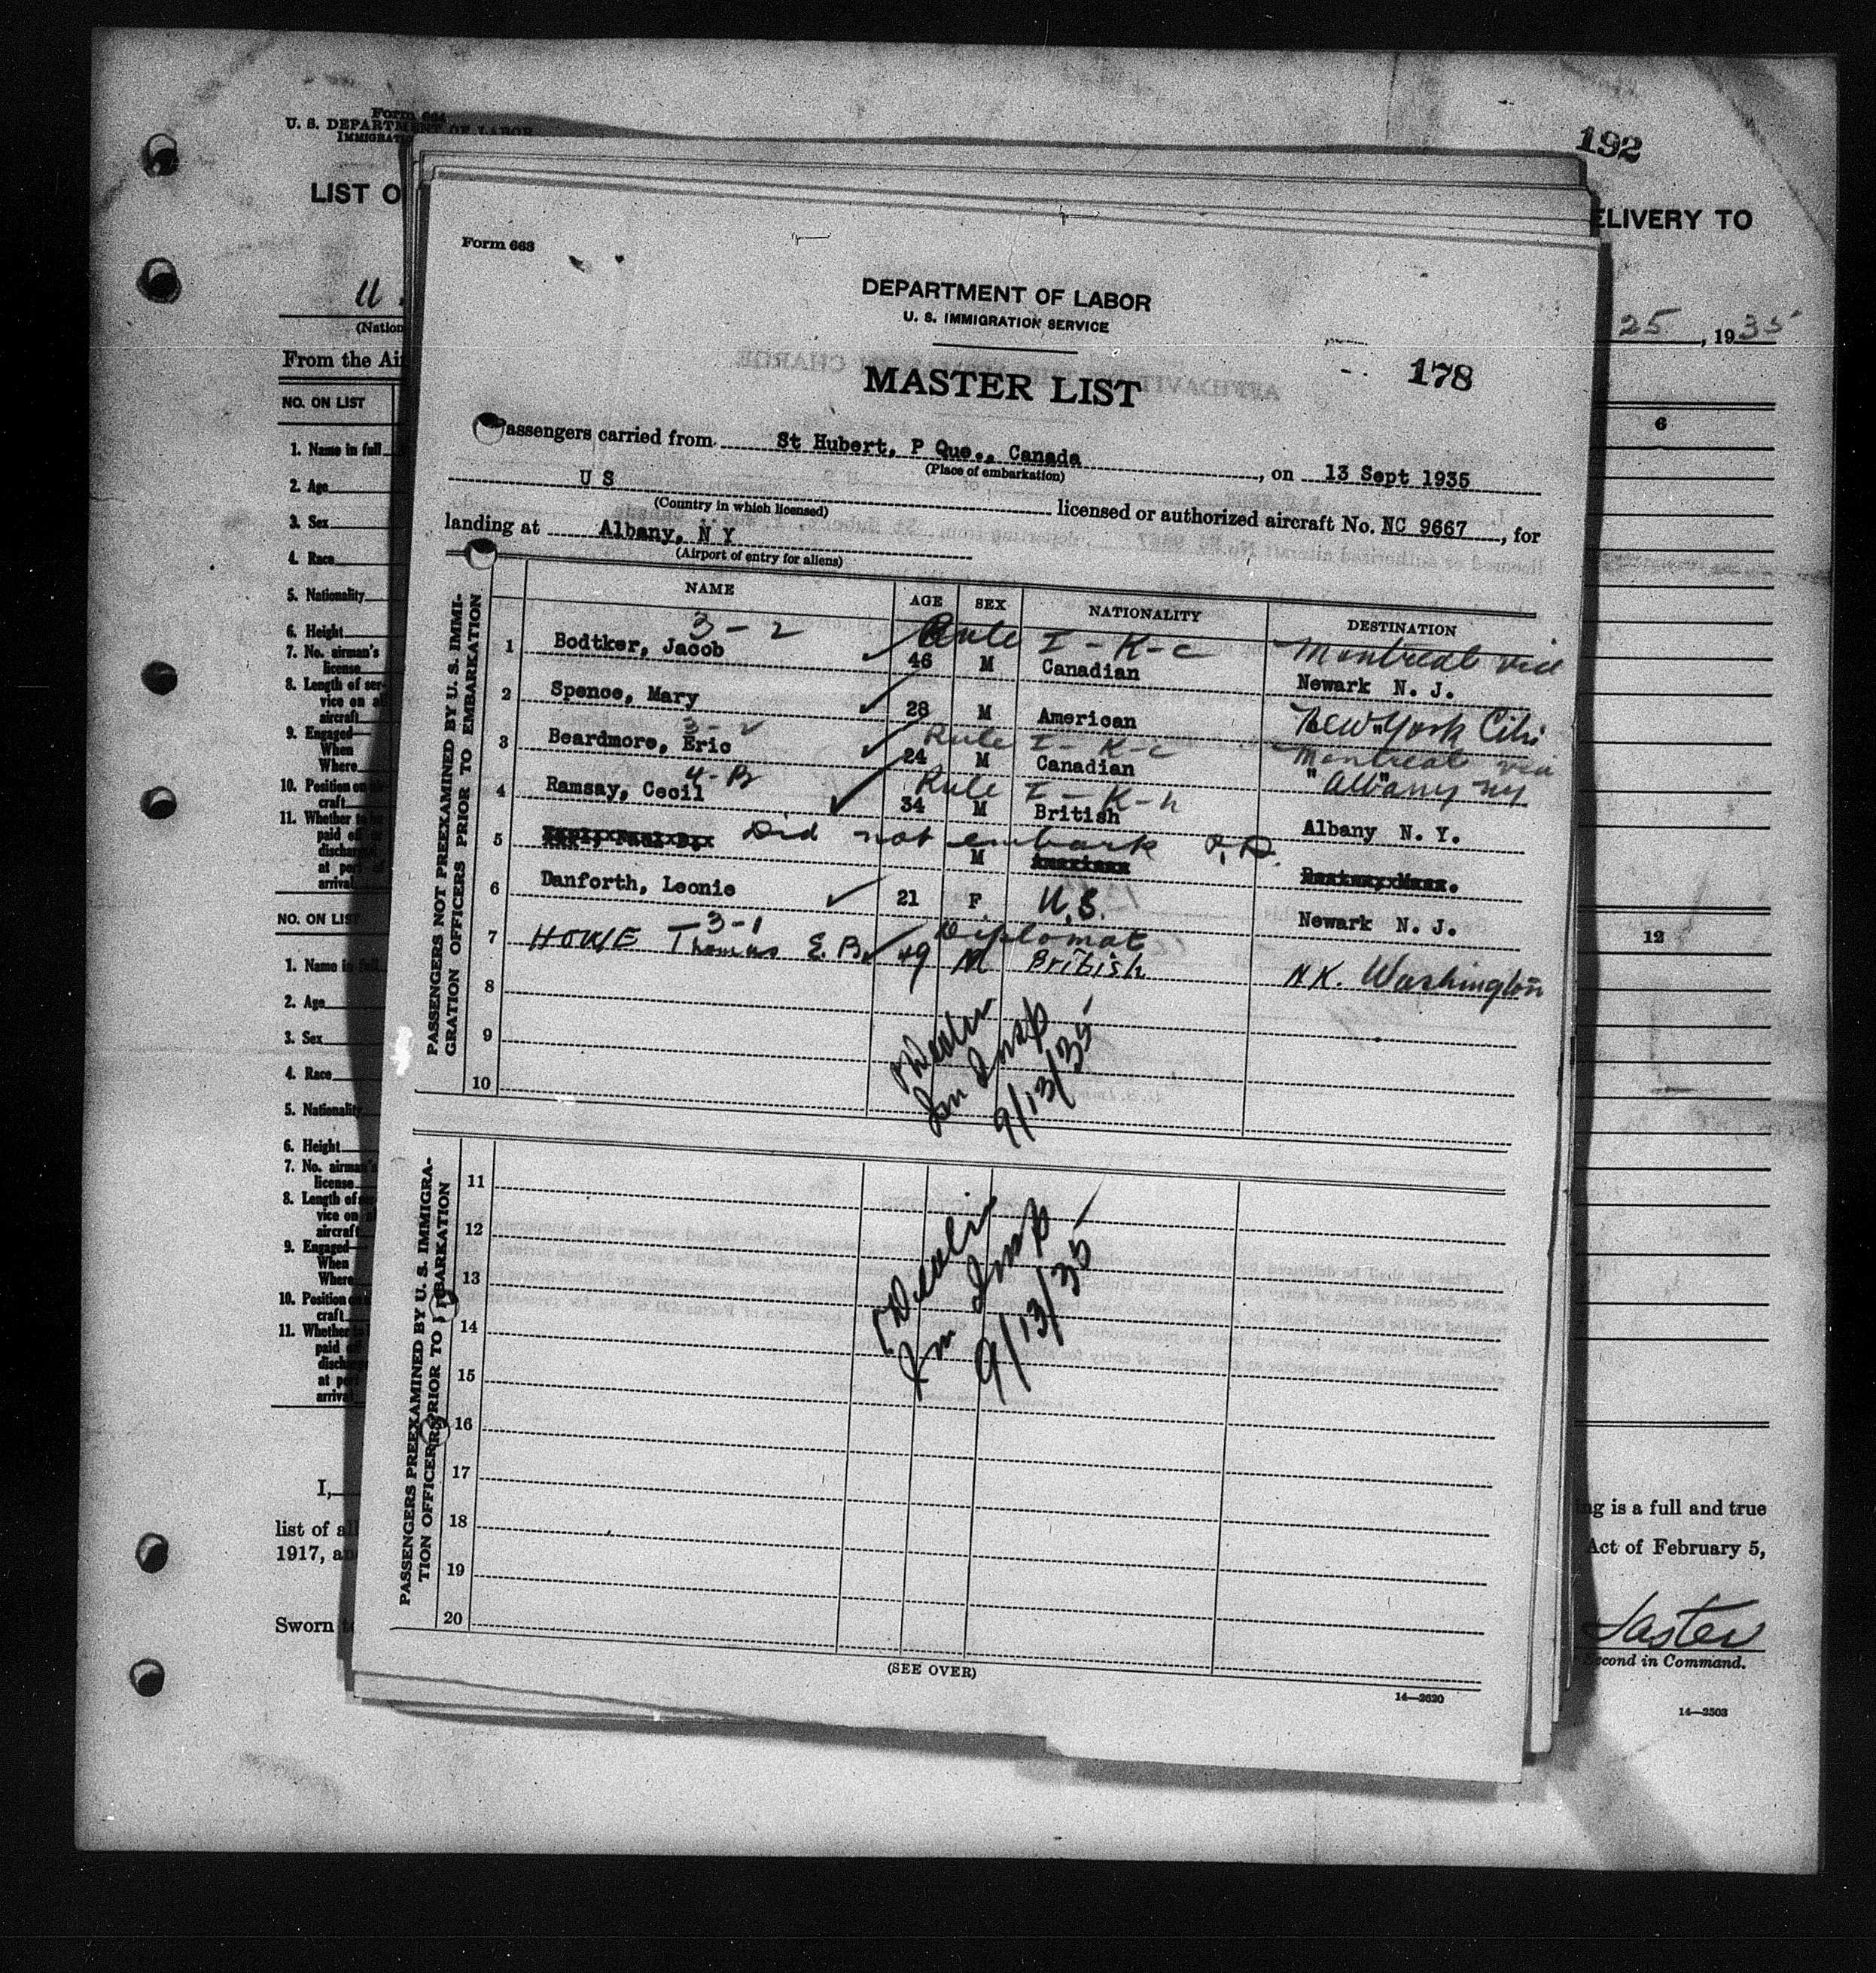 Form 664
U. S. DEPARTMENT OF LABOR
IMMIGRAT
192
LIST O
ELIVERY TO
U.
(Nation
25, 1935
From the Air
NO. ON LIST
6
1. Name in full
2. Age
3. Sex
4. Race
5. Nationality
6. Height
7. No. airman's
license
8. Length of ser-
vice on a
aircraft
9. Engaged—
When
Where
10. Position on
craft
11. Whether to be
paid off or
discharged
at port of
arrival
NO. ON LIST
12
1. Name in full
2. Age
3. Sex
4. Race
5. Nationality
6. Height
7. No. airman's
license
8. Length of ser
vice on a
aircraft
9. Engaged—
When
Where
10. Position on
craft
11. Whether to
paid of
discha
at port
arrival
I,
ng is a full and true
list of all
1917, an
Act of February 5,
Sworn to
Second in Command.
14—2503
Form 663
DEPARTMENT OF LABOR
U. S. IMMIGRATION SERVICE
178
MASTER LIST
Passengers carried from St Hubert, P Que., Canada, on 13 Sept 1935
(Place of embarkation)
U S licensed or authorized aircraft No. NC 9667, for
(Country in which licensed)
landing at Albany, N Y
(Airport of entry for aliens)
PASSENGERS NOT PREEXAMINED BY U. S. IMMI-
GRATION OFFICERS PRIOR TO EMBARKATION
NAME AGE SEX NATIONALITY DESTINATION
3-2 Rule I-K-c Montreal via
1 Bodtker, Jacob 46 M Canadian Newark N. J.
2 Spence, Mary 28 M American New York City
3-2 Rule I-K-c Montreal via
3 Beardmore, Eric 24 M Canadian " " Albany NY
4-B Rule I-K-h
4 Ramsay, Cecil 34 M British Albany N. Y.
5 Did not embark M
6 Danforth, Leonie 21 F. U.S. Newark N. J.
3-1 Diplomat
7 HOWE Thomas E.B. 49 M British N.K. Washington
8
9
10
Imm Insp
9/13/35
PASSENGERS PREEXAMINED BY U. S. IMMIGRA-
TION OFFICERS PRIOR TO EMBARKATION
11
12
13
14
15
16
17
18
19
20
Imm Insp
9/13/35
(SEE OVER)
14—2620